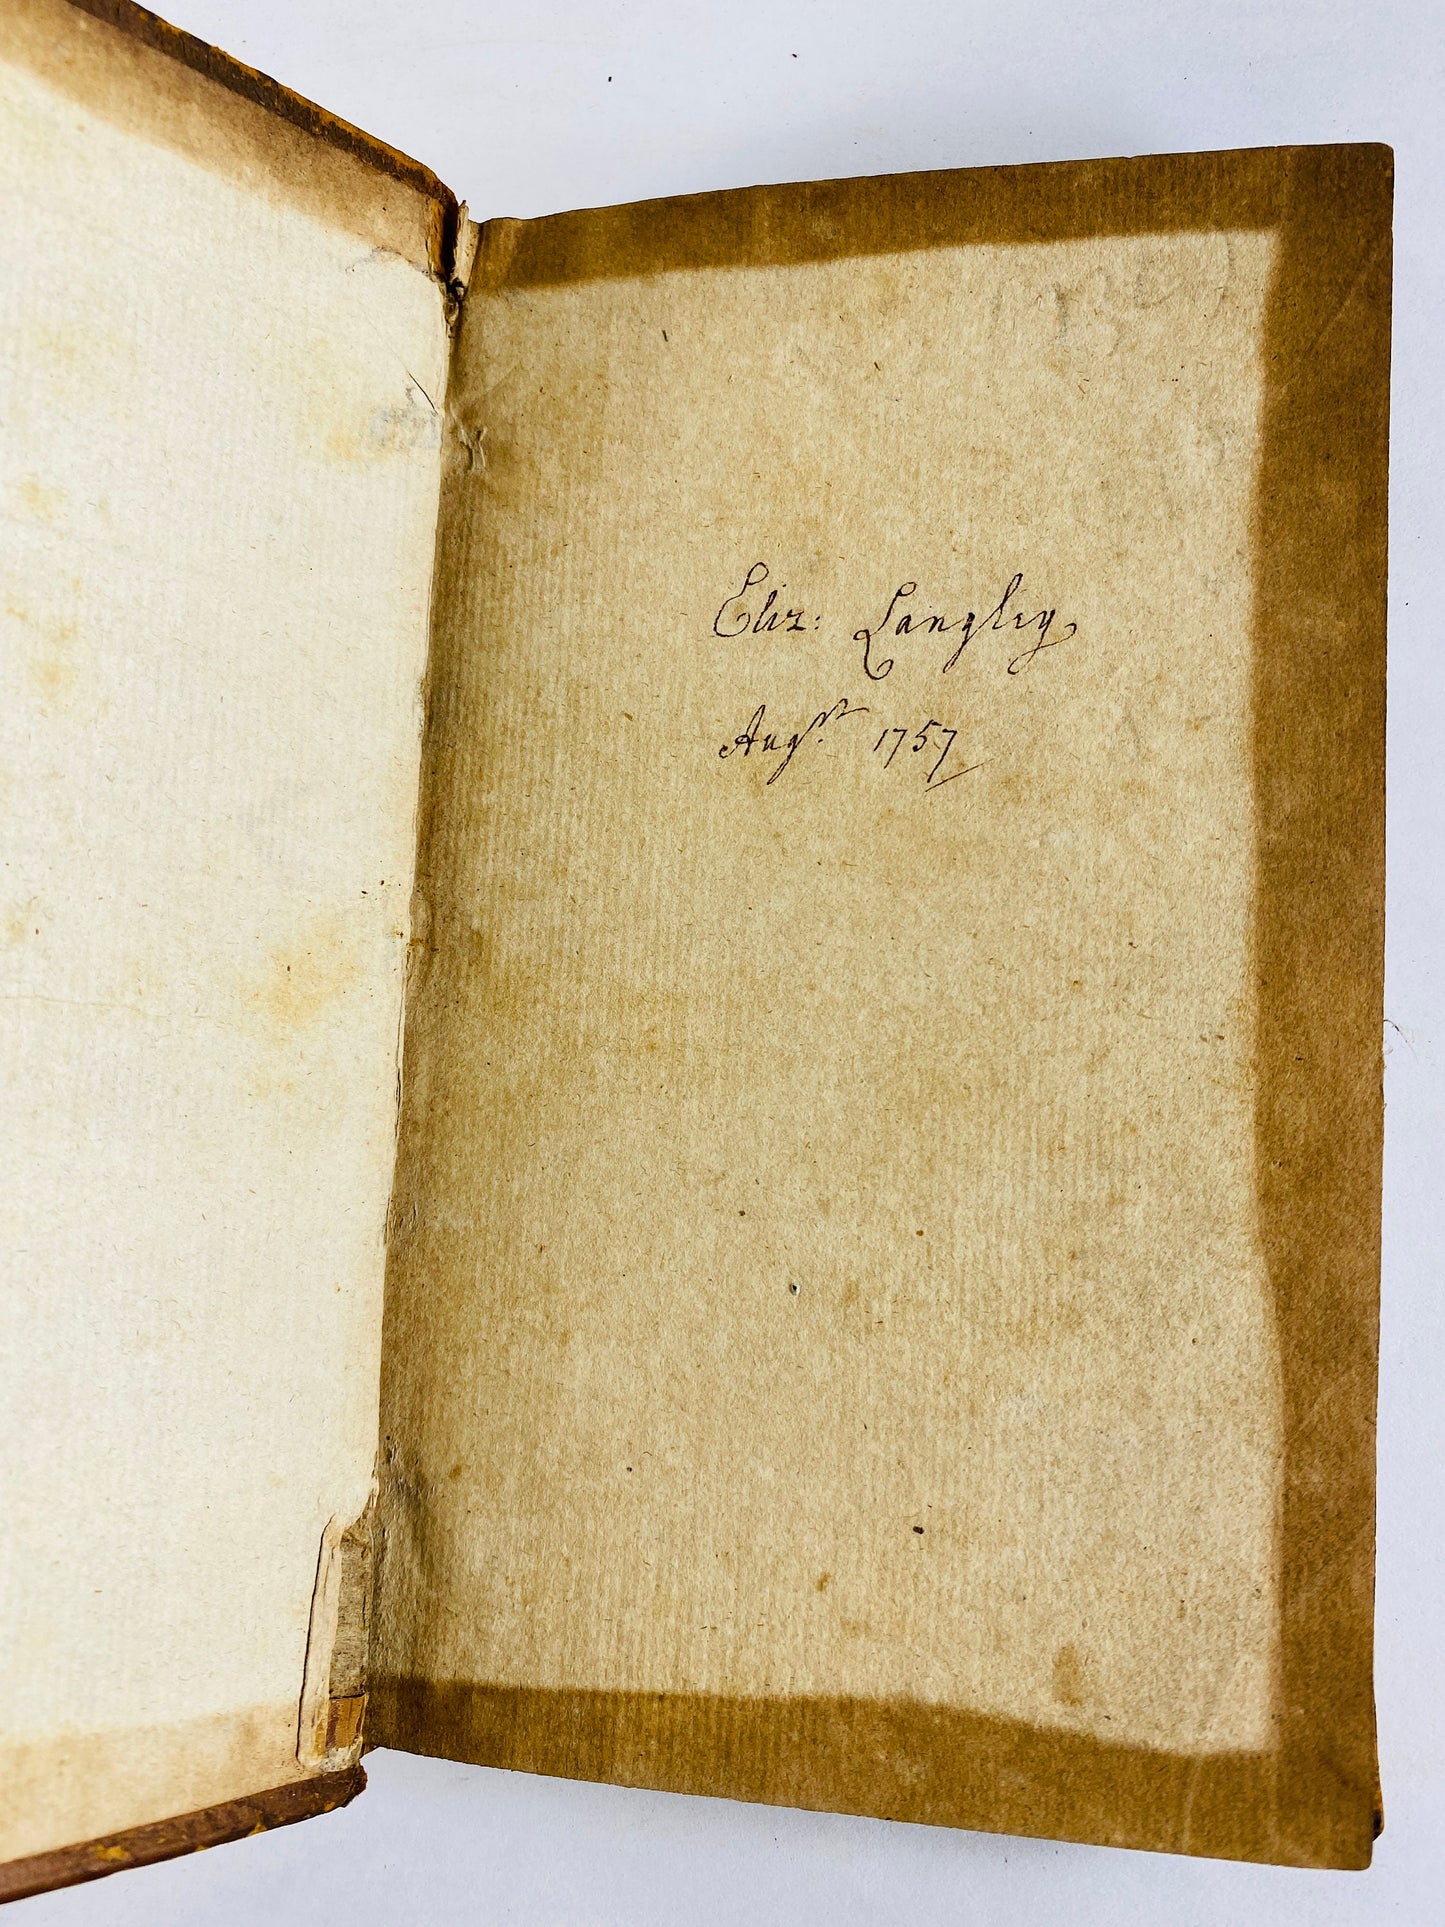 Eliz: Langley
Augst. 1757